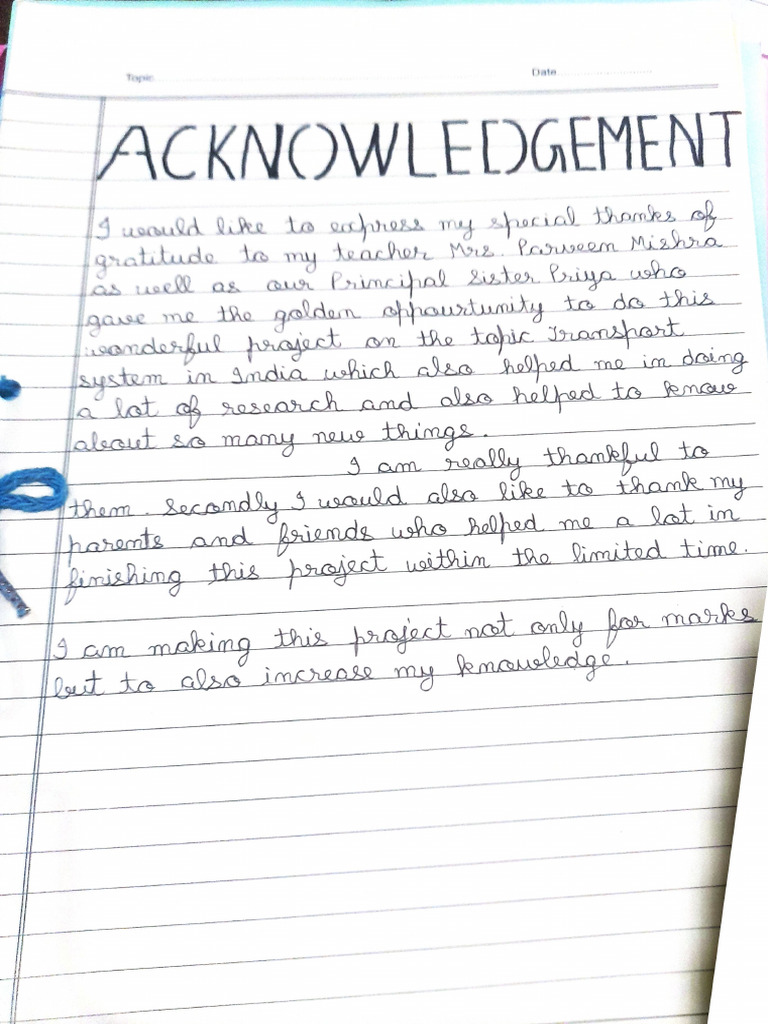 Topic
Date
ACKNOWLEDGEMENT
I would like to express my special thanks of
gratitude to my teacher Mrs. Parveen Mishra
as well as our Principal Sister Priya who
gave me the golden oppourtunity to do this
wonderful project on the topic Transport
system in India which also helped me in doing
a lot of research and also helped to know
about so many new things.
I am really thankful to
them. Secondly I would also like to thank my
parents and friends who helped me a lot in
finishing this project within the limited time.
I am making this project not only for marks
but to also increase my knowledge.